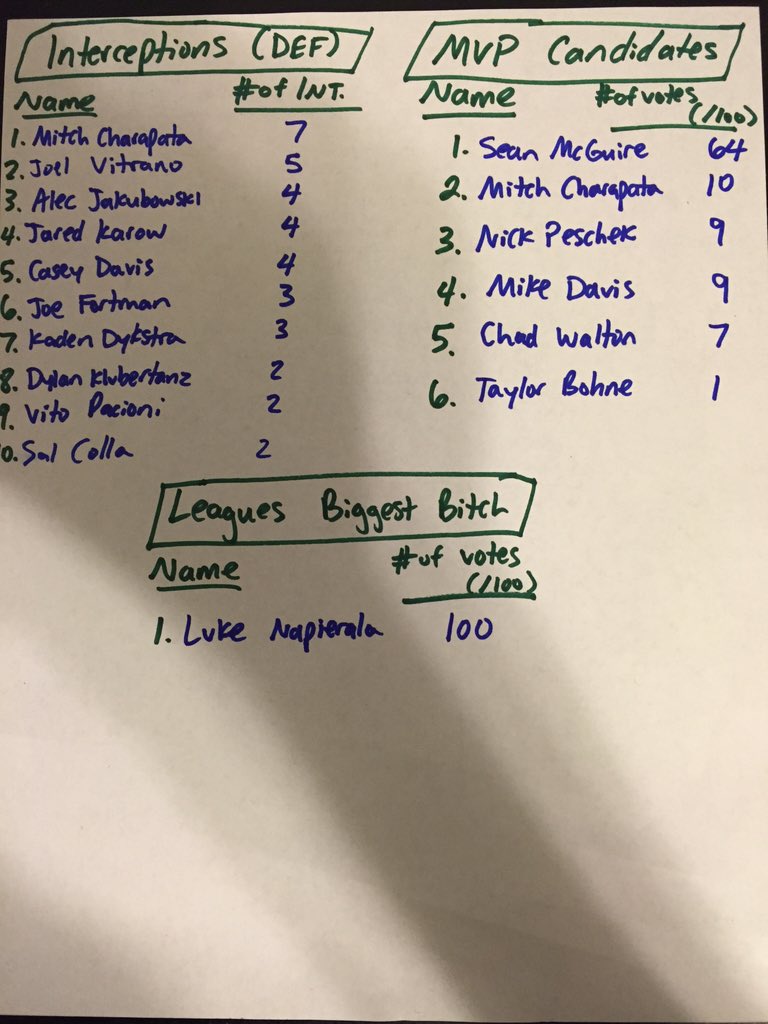 Interceptions (DEF)
Name # of INT.
1. Mitch Charapata 7
2. Joel Vitrano 5
3. Alec Jakubowski 4
4. Jared Karow 4
5. Casey Davis 4
6. Joe Fortman 3
7. Kaden Dykstra 3
8. Dylan Klubertanz 2
9. Vito Pacioni 2
0. Sal Colla 2
MVP Candidates
Name # of votes
(/100)
1. Sean McGuire 64
2. Mitch Charapata 10
3. Nick Peschek 9
4. Mike Davis 9
5. Chad Walton 7
6. Taylor Bohne 1
Leagues Biggest Bitch
Name # of votes
(/100)
1. Luke Napierala 100